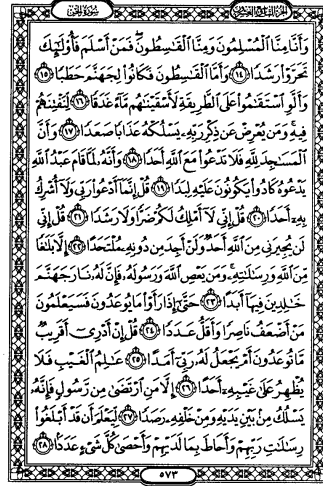 الجزء التاسع والعشرون
سورة الجن
وَأَنَّا مِنَّا ٱلْمُسْلِمُونَ وَمِنَّا ٱلْقَٰسِطُونَ فَمَنْ أَسْلَمَ فَأُو۟لَٰٓئِكَ
تَحَرَّوْا۟ رَشَدًا ١٤ وَأَمَّا ٱلْقَٰسِطُونَ فَكَانُوا۟ لِجَهَنَّمَ حَطَبًا ١٥
وَأَلَّوِ ٱسْتَقَٰمُوا۟ عَلَى ٱلطَّرِيقَةِ لَأَسْقَيْنَٰهُم مَّآءً غَدَقًا ١٦ لِّنَفْتِنَهُمْ
فِيهِ وَمَن يُعْرِضْ عَن ذِكْرِ رَبِّهِۦ يَسْلُكْهُ عَذَابًا صَعَدًا ١٧ وَأَنَّ
ٱلْمَسَٰجِدَ لِلَّهِ فَلَا تَدْعُوا۟ مَعَ ٱللَّهِ أَحَدًا ١٨ وَأَنَّهُۥ لَمَّا قَامَ عَبْدُ ٱللَّهِ
يَدْعُوهُ كَادُوا۟ يَكُونُونَ عَلَيْهِ لِبَدًا ١٩ قُلْ إِنَّمَآ أَدْعُوا۟ رَبِّى وَلَآ أُشْرِكُ
بِهِۦٓ أَحَدًا ٢٠ قُلْ إِنِّى لَآ أَمْلِكُ لَكُمْ ضَرًّا وَلَا رَشَدًا ٢١ قُلْ إِنِّى
لَن يُجِيرَنِى مِنَ ٱللَّهِ أَحَدٌ وَلَنْ أَجِدَ مِن دُونِهِۦ مُلْتَحَدًا ٢٢ إِلَّا بَلَٰغًا
مِّنَ ٱللَّهِ وَرِسَٰلَٰتِهِۦ وَمَن يَعْصِ ٱللَّهَ وَرَسُولَهُۥ فَإِنَّ لَهُۥ نَارَ جَهَنَّمَ
خَٰلِدِينَ فِيهَآ أَبَدًا ٢٣ حَتَّىٰٓ إِذَا رَأَوْا۟ مَا يُوعَدُونَ فَسَيَعْلَمُونَ
مَنْ أَضْعَفُ نَاصِرًا وَأَقَلُّ عَدَدًا ٢٤ قُلْ إِنْ أَدْرِىٓ أَقَرِيبٌ
مَّا تُوعَدُونَ أَمْ يَجْعَلُ لَهُۥ رَبِّىٓ أَمَدًا ٢٥ عَٰلِمُ ٱلْغَيْبِ فَلَا
يُظْهِرُ عَلَىٰ غَيْبِهِۦٓ أَحَدًا ٢٦ إِلَّا مَنِ ٱرْتَضَىٰ مِن رَّسُولٍ فَإِنَّهُۥ
يَسْلُكُ مِنۢ بَيْنِ يَدَيْهِ وَمِنْ خَلْفِهِۦ رَصَدًا ٢٧ لِّيَعْلَمَ أَن قَدْ أَبْلَغُوا۟
رِسَٰلَٰتِ رَبِّهِمْ وَأَحَاطَ بِمَا لَدَيْهِمْ وَأَحْصَىٰ كُلَّ شَىْءٍ عَدَدًۢا ٢٨
٥٧٣